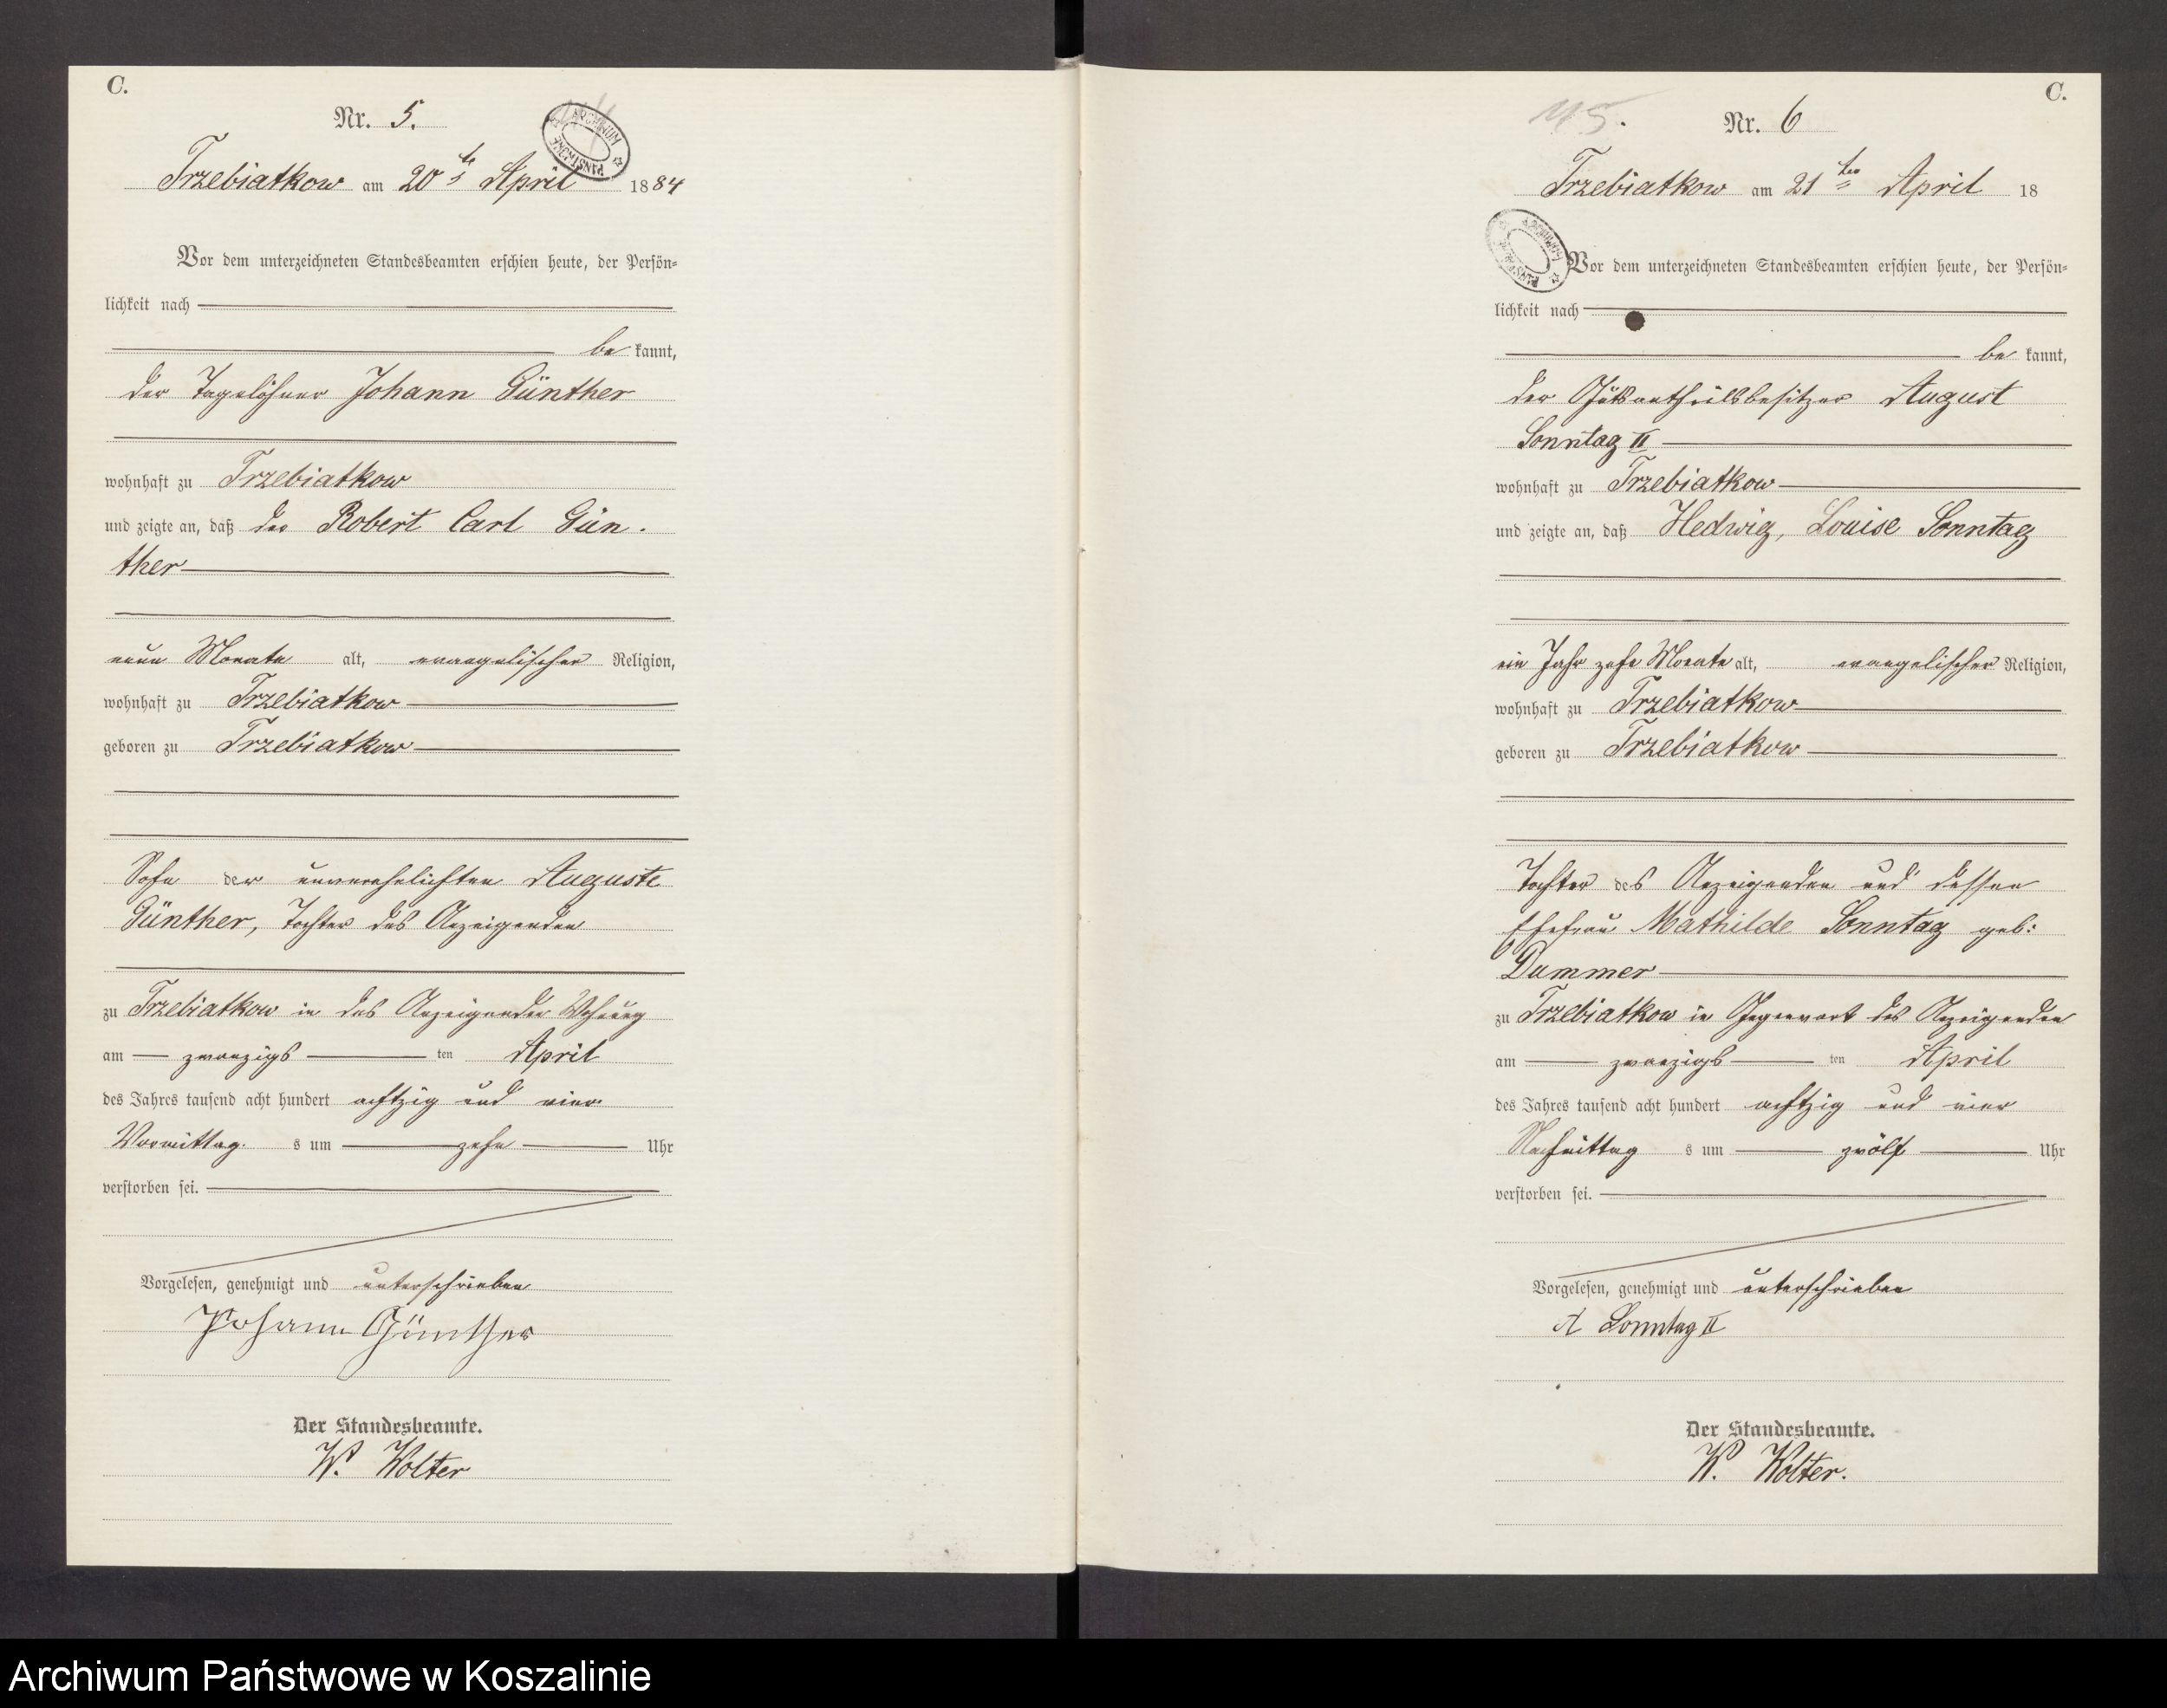 C.
Nr. 5.
ARCHIWUM PAŃSTWOWE
Trzebiatkow am 20ts April 1884
Vor dem unterzeichneten Standesbeamten erschien heute, der Persön-
lichkeit nach
be kannt,
der Tagelöhner Johann Günther
wohnhaft zu Trzebiatkow
und zeigte an, daß der Robert Carl Gün-
ther
neun Monate alt, evangelischer Religion,
wohnhaft zu Trzebiatkow
geboren zu Trzebiatkow
Sohn der unverehelichten Auguste
Günther, Tochter des Anzeigenden
zu Trzebiatkow in des Anzeigenden Wohnung
am zwanzigs ten April
des Jahres tausend acht hundert achtzig und vier
Vormittag s um zehn Uhr
verstorben sei.
Vorgelesen, genehmigt und unterschrieben
Johann Günther
Der Standesbeamte.
W. Wolter
C.
45.
Nr. 6
Trzebiatkow am 21ten April 18
ARCHIWUM PAŃSTWOWE
Vor dem unterzeichneten Standesbeamten erschien heute, der Persön-
lichkeit nach
be kannt,
der Gutsantheilsbesitzer August
Sonntag II
wohnhaft zu Trzebiatkow
und zeigte an, daß Hedwig, Louise Sonntag
ein Jahr zehn Monate alt, evangelischer Religion,
wohnhaft zu Trzebiatkow
geboren zu Trzebiatkow
Tochter des Anzeigenden und dessen
Ehefrau Mathilde Sonntag geb:
Dummer
zu Trzebiatkow in Gegenwart des Anzeigenden
am zwanzigs ten April
des Jahres tausend acht hundert achtzig und vier
Nachmittag s um zwölf Uhr
verstorben sei.
Vorgelesen, genehmigt und unterschrieben
A Sonntag II
Der Standesbeamte.
W. Wolter.
Archiwum Państwowe w Koszalinie